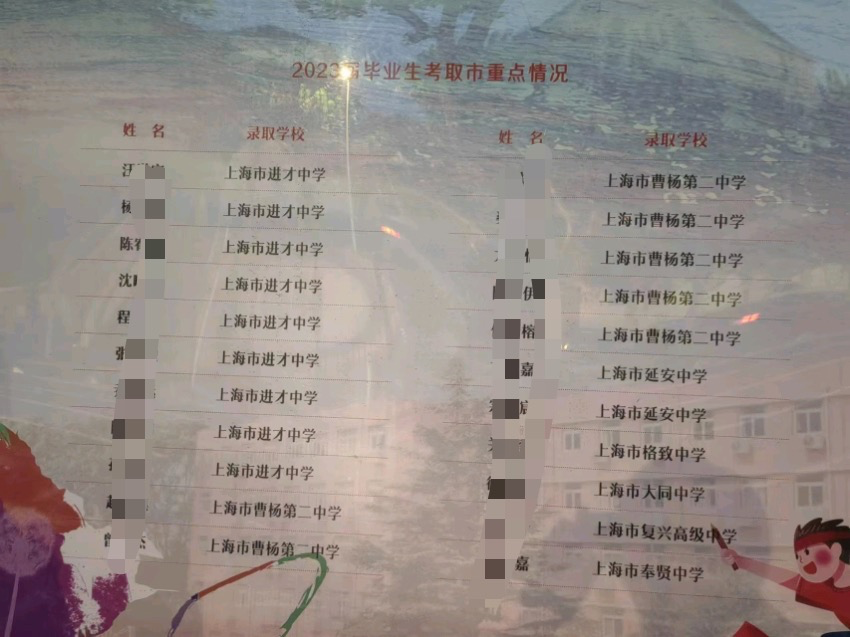 2023届毕业生考取市重点情况
姓 名 录取学校
上海市进才中学
上海市进才中学
陈 上海市进才中学
沈 上海市进才中学
程 上海市进才中学
张 上海市进才中学
上海市进才中学
上海市进才中学
上海市进才中学
上海市曹杨第二中学
上海市曹杨第二中学
姓 名 录取学校
上海市曹杨第二中学
上海市曹杨第二中学
上海市曹杨第二中学
上海市曹杨第二中学
榕 上海市曹杨第二中学
嘉 上海市延安中学
上海市延安中学
上海市格致中学
上海市大同中学
上海市复兴高级中学
嘉 上海市奉贤中学